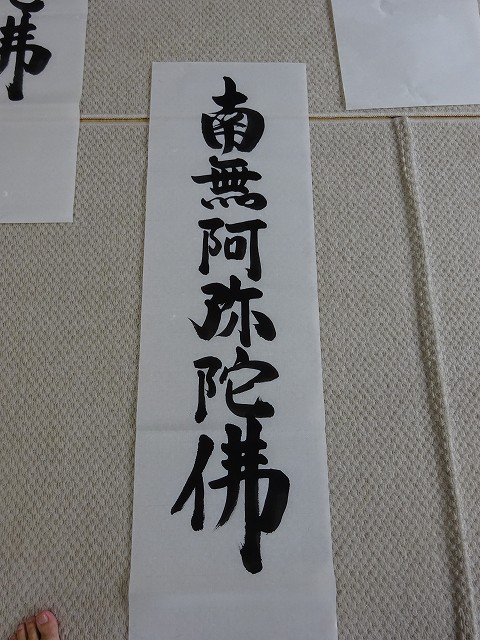 南無阿弥陀佛
佛